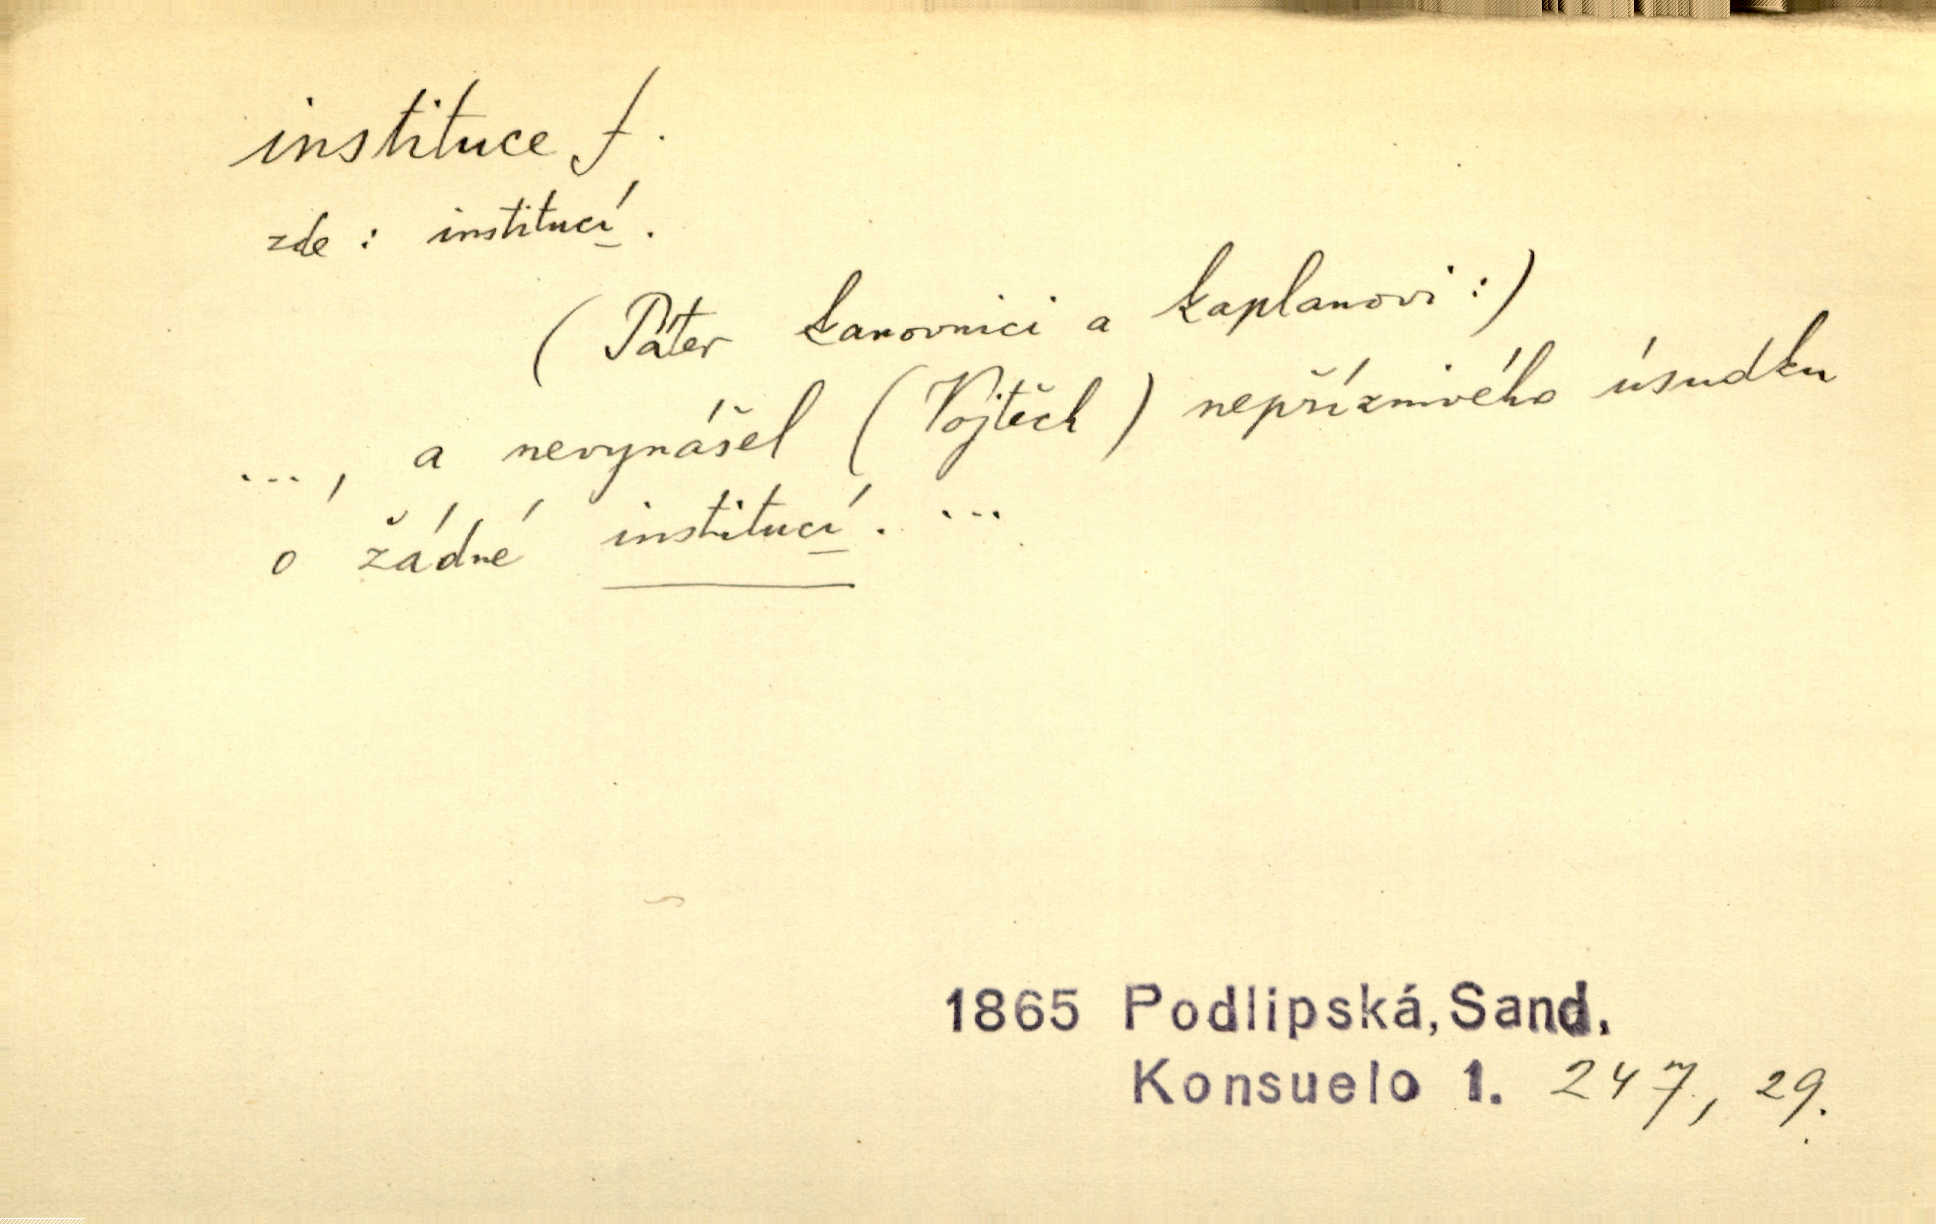 instituce f.
zde : institucí.
( Páter kanovnici a kaplanovi :)
..., a nevynášel ( Vojtěch ) nepříznivého úsudku
o žádné institucí. ...
1865 Podlipská, Sand.
Konsuelo 1. 247, 29.